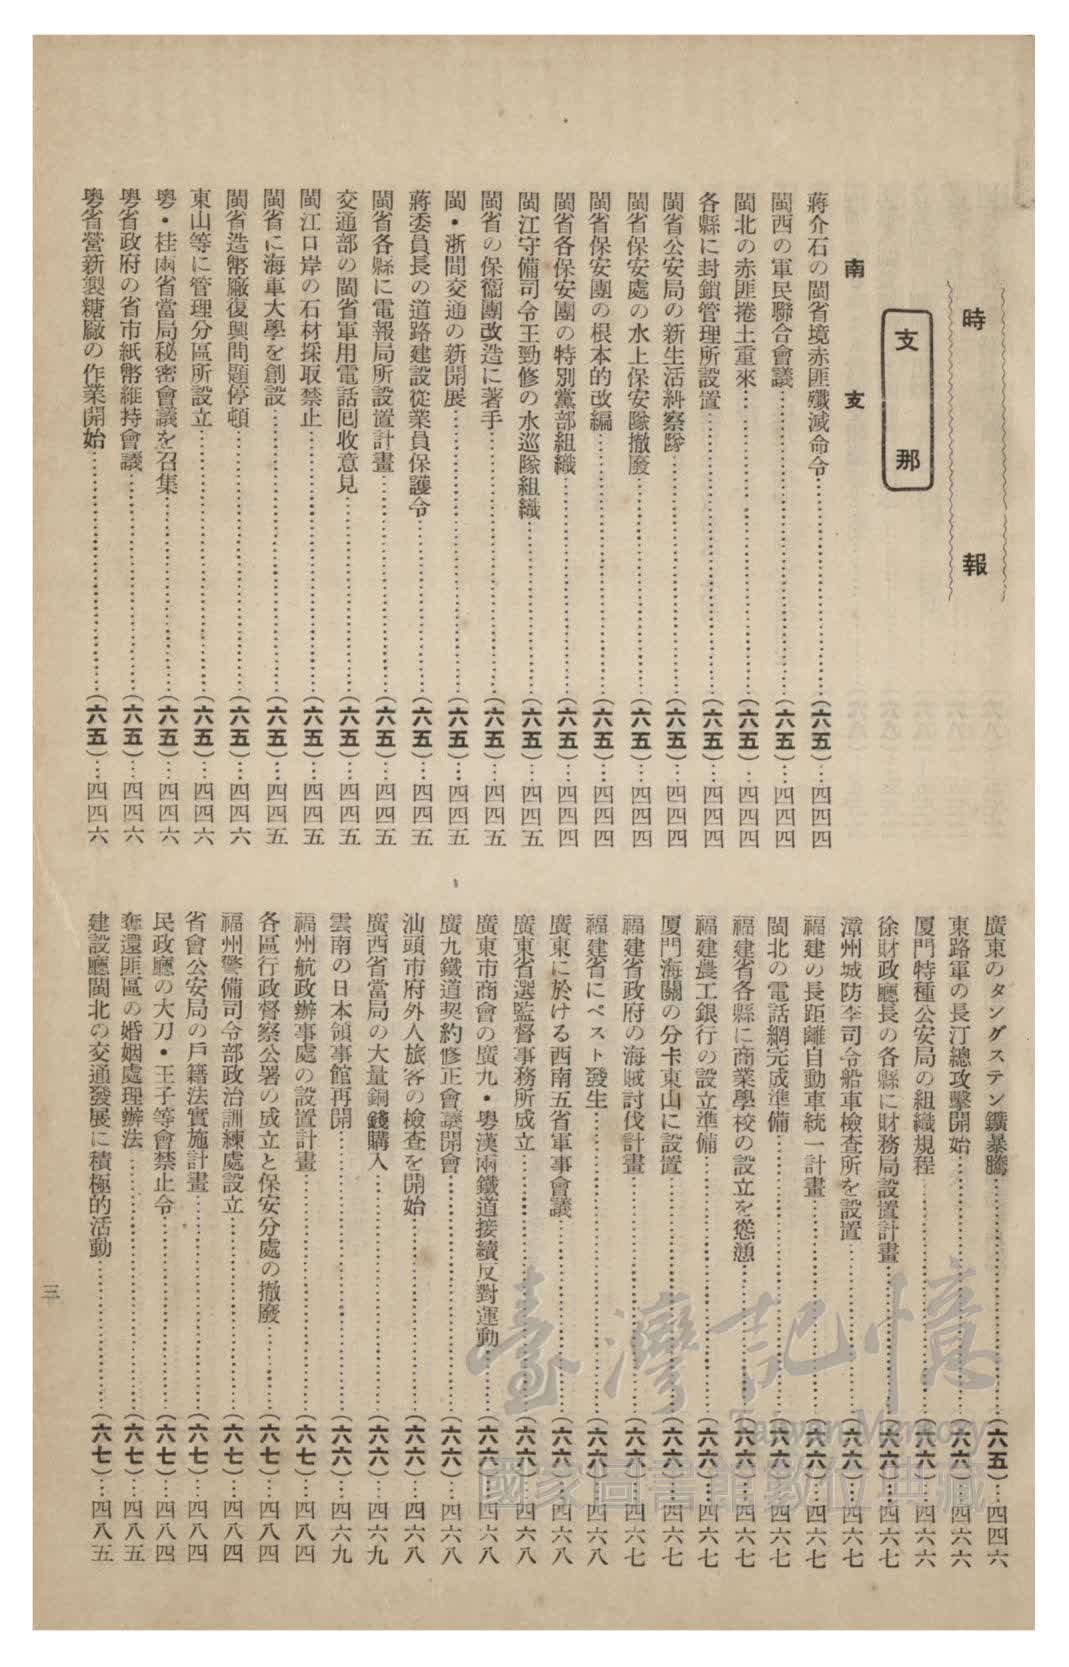 時報
支那
南支
蔣介石の閩省境赤匪殲滅命令…(六五)…四四四
閩西の軍民聯合會議…(六五)…四四四
閩北の赤匪捲土重來…(六五)…四四四
各縣に封鎖管理所設置…(六五)…四四四
閩省公安局の新生活糾察隊…(六五)…四四四
閩省保安處の水上保安隊撤廢…(六五)…四四四
閩省保安團の根本的改編…(六五)…四四四
閩省各保安團の特別黨部組織…(六五)…四四四
閩江守備司令王勁修の水巡隊組織…(六五)…四四五
閩省の保衞團改造に著手…(六五)…四四五
閩・浙間交通の新開展…(六五)…四四五
蔣委員長の道路建設從業員保護令…(六五)…四四五
閩省各縣に電報局所設置計畫…(六五)…四四五
交通部の閩省軍用電話囘收意見…(六五)…四四五
閩江口岸の石材採取禁止…(六五)…四四五
閩省に海軍大學を創設…(六五)…四四五
閩省造幣廠復興問題停頓…(六五)…四四六
東山等に管理分區所設立…(六五)…四四六
粤・桂兩省當局秘密會議を召集…(六五)…四四六
粤省政府の省市紙幣維持會議…(六五)…四四六
粤省營新製糖廠の作業開始…(六五)…四四六
廣東のタングステン鑛暴騰…(六五)…四四六
東路軍の長汀總攻擊開始…(六六)…四六六
厦門特種公安局の組織規程…(六六)…四六六
徐財政廳長の各縣に財務局設置計畫…(六六)…四六七
漳州城防李司令船車檢查所を設置…(六六)…四六七
福建の長距離自動車統一計畫…(六六)…四六七
閩北の電話網完成準備…(六六)…四六七
福建省各縣に商業學校の設立を慫慂…(六六)…四六七
福建農工銀行の設立準備…(六六)…四六七
厦門海關の分卡東山に設置…(六六)…四六七
福建省政府の海賊討伐計畫…(六六)…四六七
福建省にペスト發生…(六六)…四六八
廣東に於ける西南五省軍事會議…(六六)…四六八
廣東省選監督事務所成立…(六六)…四六八
廣東市商會の廣九・粤漢兩鐵道接續反對運動…(六六)…四六八
廣九鐵道契約修正會議開會…(六六)…四六八
汕頭市府外人旅客の檢查を開始…(六六)…四六八
廣西省當局の大量銅錢購入…(六六)…四六九
雲南の日本領事館再開…(六六)…四六九
福州航政辦事處の設置計畫…(六七)…四八四
各區行政督察公署の成立と保安分處の撤廢…(六七)…四八四
福州警備司令部政治訓練處設立…(六七)…四八四
省會公安局の戶籍法實施計畫…(六七)…四八四
民政廳の大刀・王子等會禁止令…(六七)…四八四
奪還匪區の婚姻處理辦法…(六七)…四八五
建設廳閩北の交通發展に積極的活動…(六七)…四八五
三
臺灣記憶
Taiwan Memory
國家圖書館數位典藏